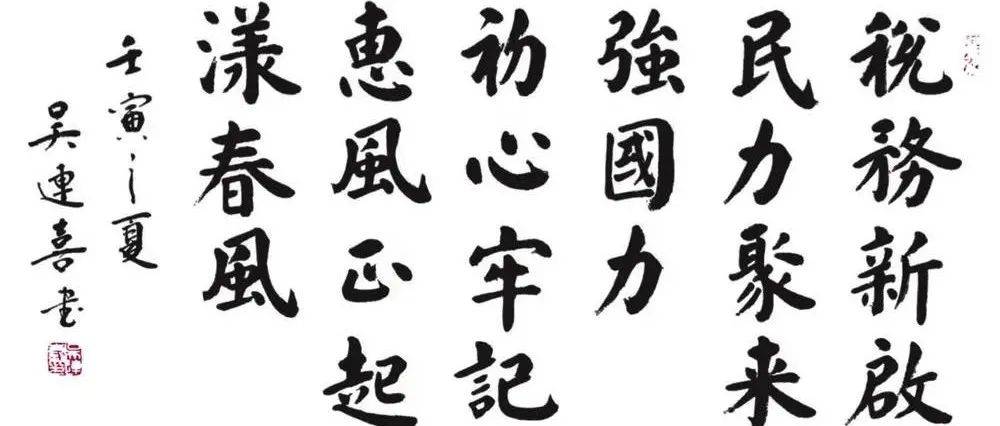 税務新啟
民力聚来
強國力
初心牢記
惠風正起
漾春風
壬寅之夏
吴連喜书